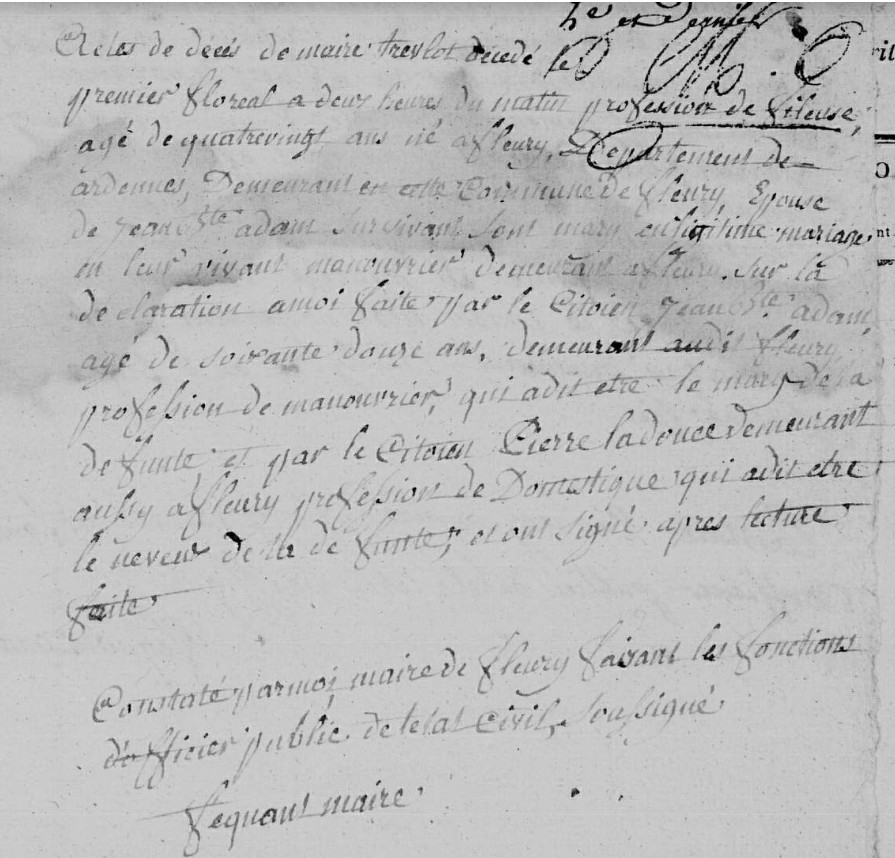 2e et Dernier
Actes de décés de maire trevlot décedé le
premier floreal a deux heures du matin profession de fileuse,
agé de quatrevingt ans né a fleury, Département de
ardennes, Demeurant en cette Commune de fleury, Epouse
de jean bte adam survivant sont mary en legitime mariage
en leur vivant manouvrier demeurant a fleury. Sur la
déclaration a moi faite par le Citoien jean bte adam
agé de soixante douze ans, demeurant audit fleury
profession de manouvrier, qui a dit etre le mary de la
defunte, et par le Citoien Pierre ladouce demeurant
aussy a fleury profession de Domestique qui a dit etre
le neveux de la defunte, et ont signé apres lecture
faite
Constaté par moi maire de fleury faisant les fonctions
d'officier public de letat Civil, soussigné
fequant maire